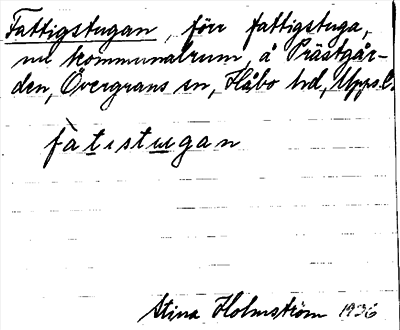 Fattigstugan, förr fattigstuga,
nu kommunalrum, å Prästgår-
den, Övergrans sn, Håbo hd, Upps.l.
fàtistugan
Stina Holmström 1936